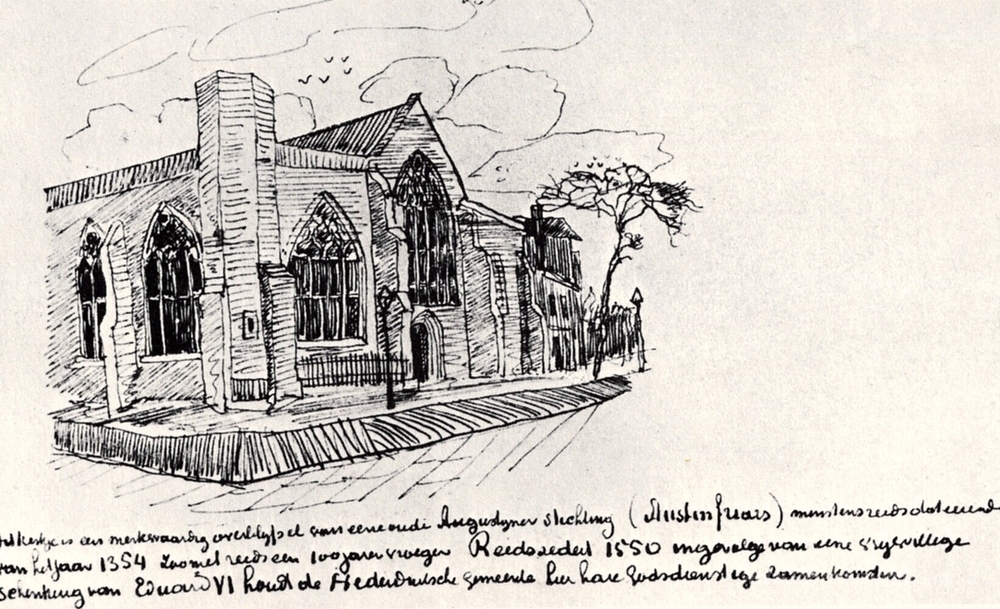 Het kerkje is een merkwaardig overblyfsel van eene oude Augustyner stichting (Austin friars) minstens reeds dateerend
van het jaar 1354 zoo niet reeds een 100 jaar vroeger Reeds sedert 1550 ingevolge van eene vrijwillige
schenking van Eduard VI houdt de Nederduitsche gemeente hier hare Godsdienstige zamenkomsten.